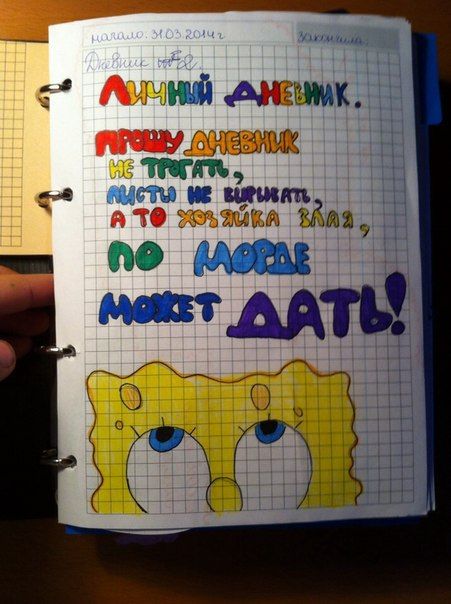 начало: 31.03.2014г закончила:
Дневник №2.
Личный дневник.
Прошу дневник
не трогать,
листы не вырывать,
а то хозяйка злая,
по морде
может дать!